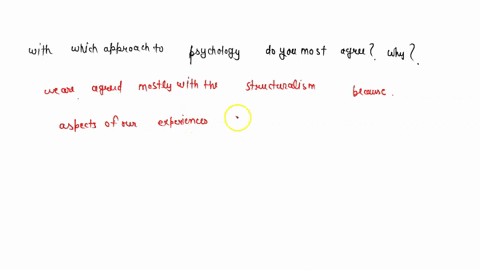 with which approach to psychology do you most agree? why?
we are agreed mostly with the structuralism because.
aspects of our experiences